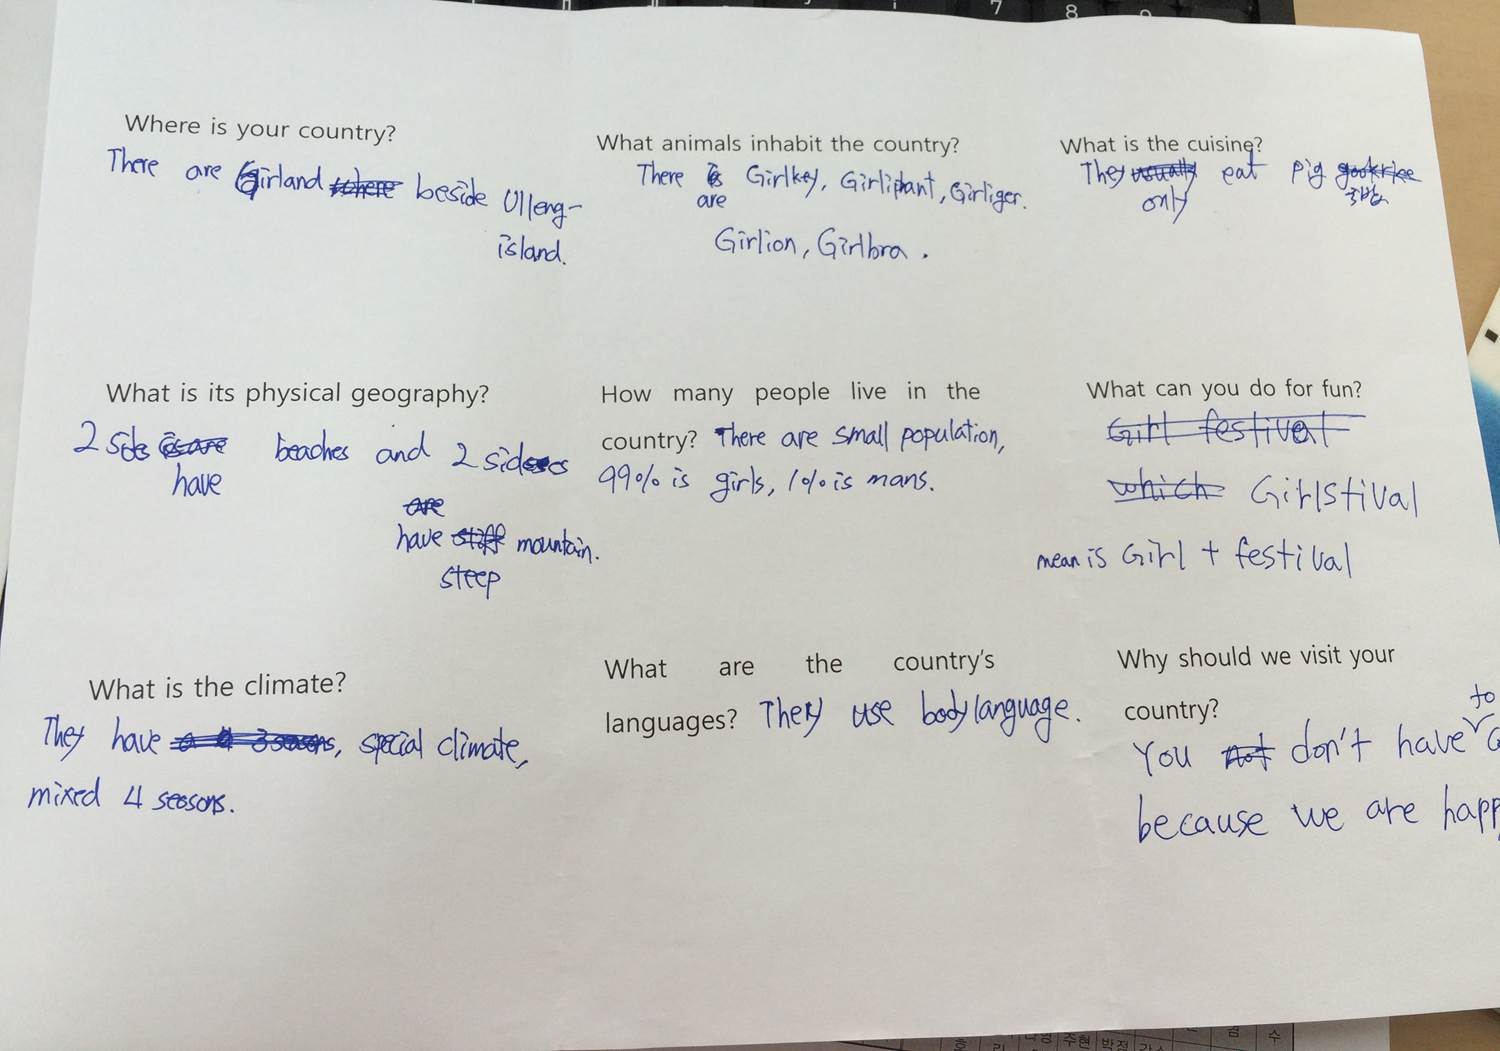 7 8 9
Where is your country?
There are Girland where beside Ulleng-
island.
What animals inhabit the country?
There is Girlkey, Girliphant, Girliger.
are
Girlion, Girlbra.
What is the cuisine?
They usually eat pig
only 국밥
What is its physical geography?
2 side is are beaches and 2 sides
have
are
have stiff mountain.
steep
How many people live in the
country? There are small population,
99% is girls, 1% is mans.
What can you do for fun?
Girl festival
which Girlstival
mean is Girl + festival
What is the climate?
They have a 4 3 seasons, special climate,
mixed 4 seasons.
What are the country's
languages? They use body language.
Why should we visit your
country?
to
You not don't have
because we are happ
주현 박정
수